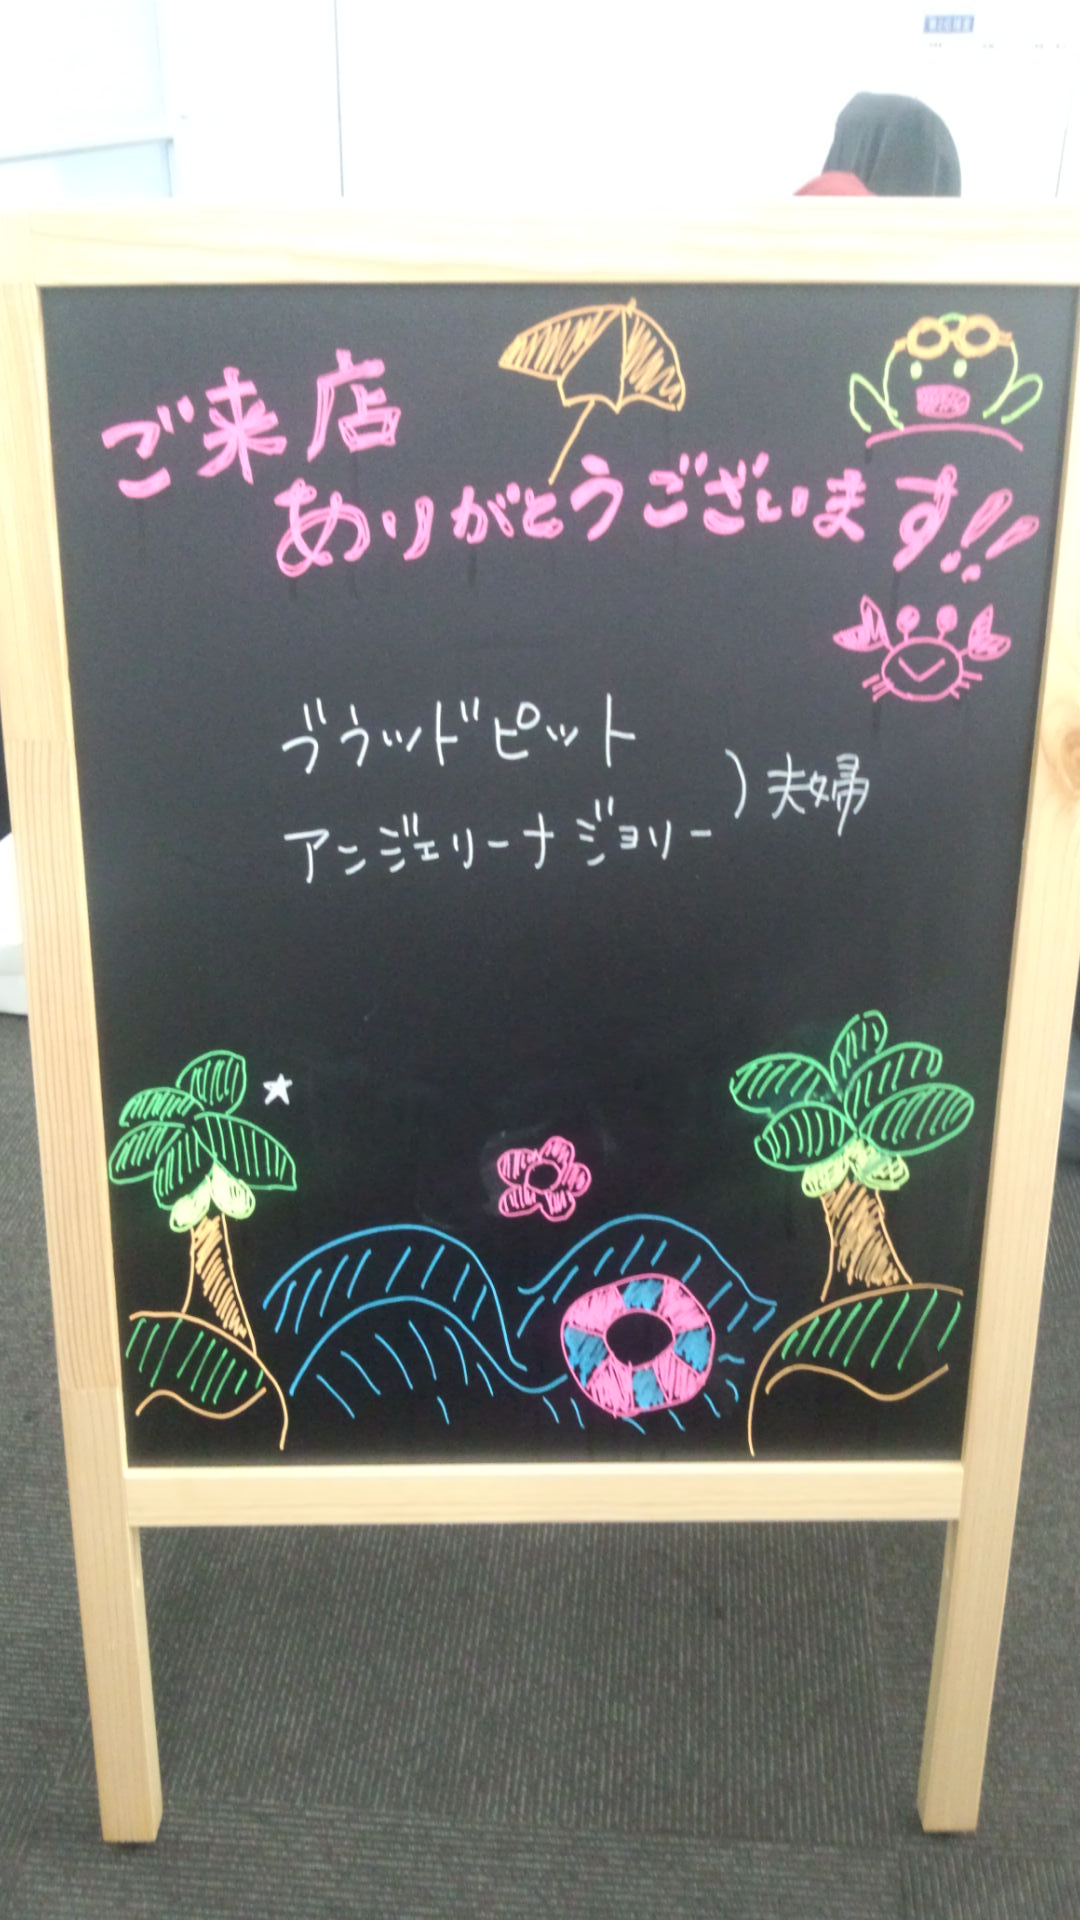 ご来店
ありがとうございます!!
ブラッドピット
アンジェリーナジョリー
)夫婦